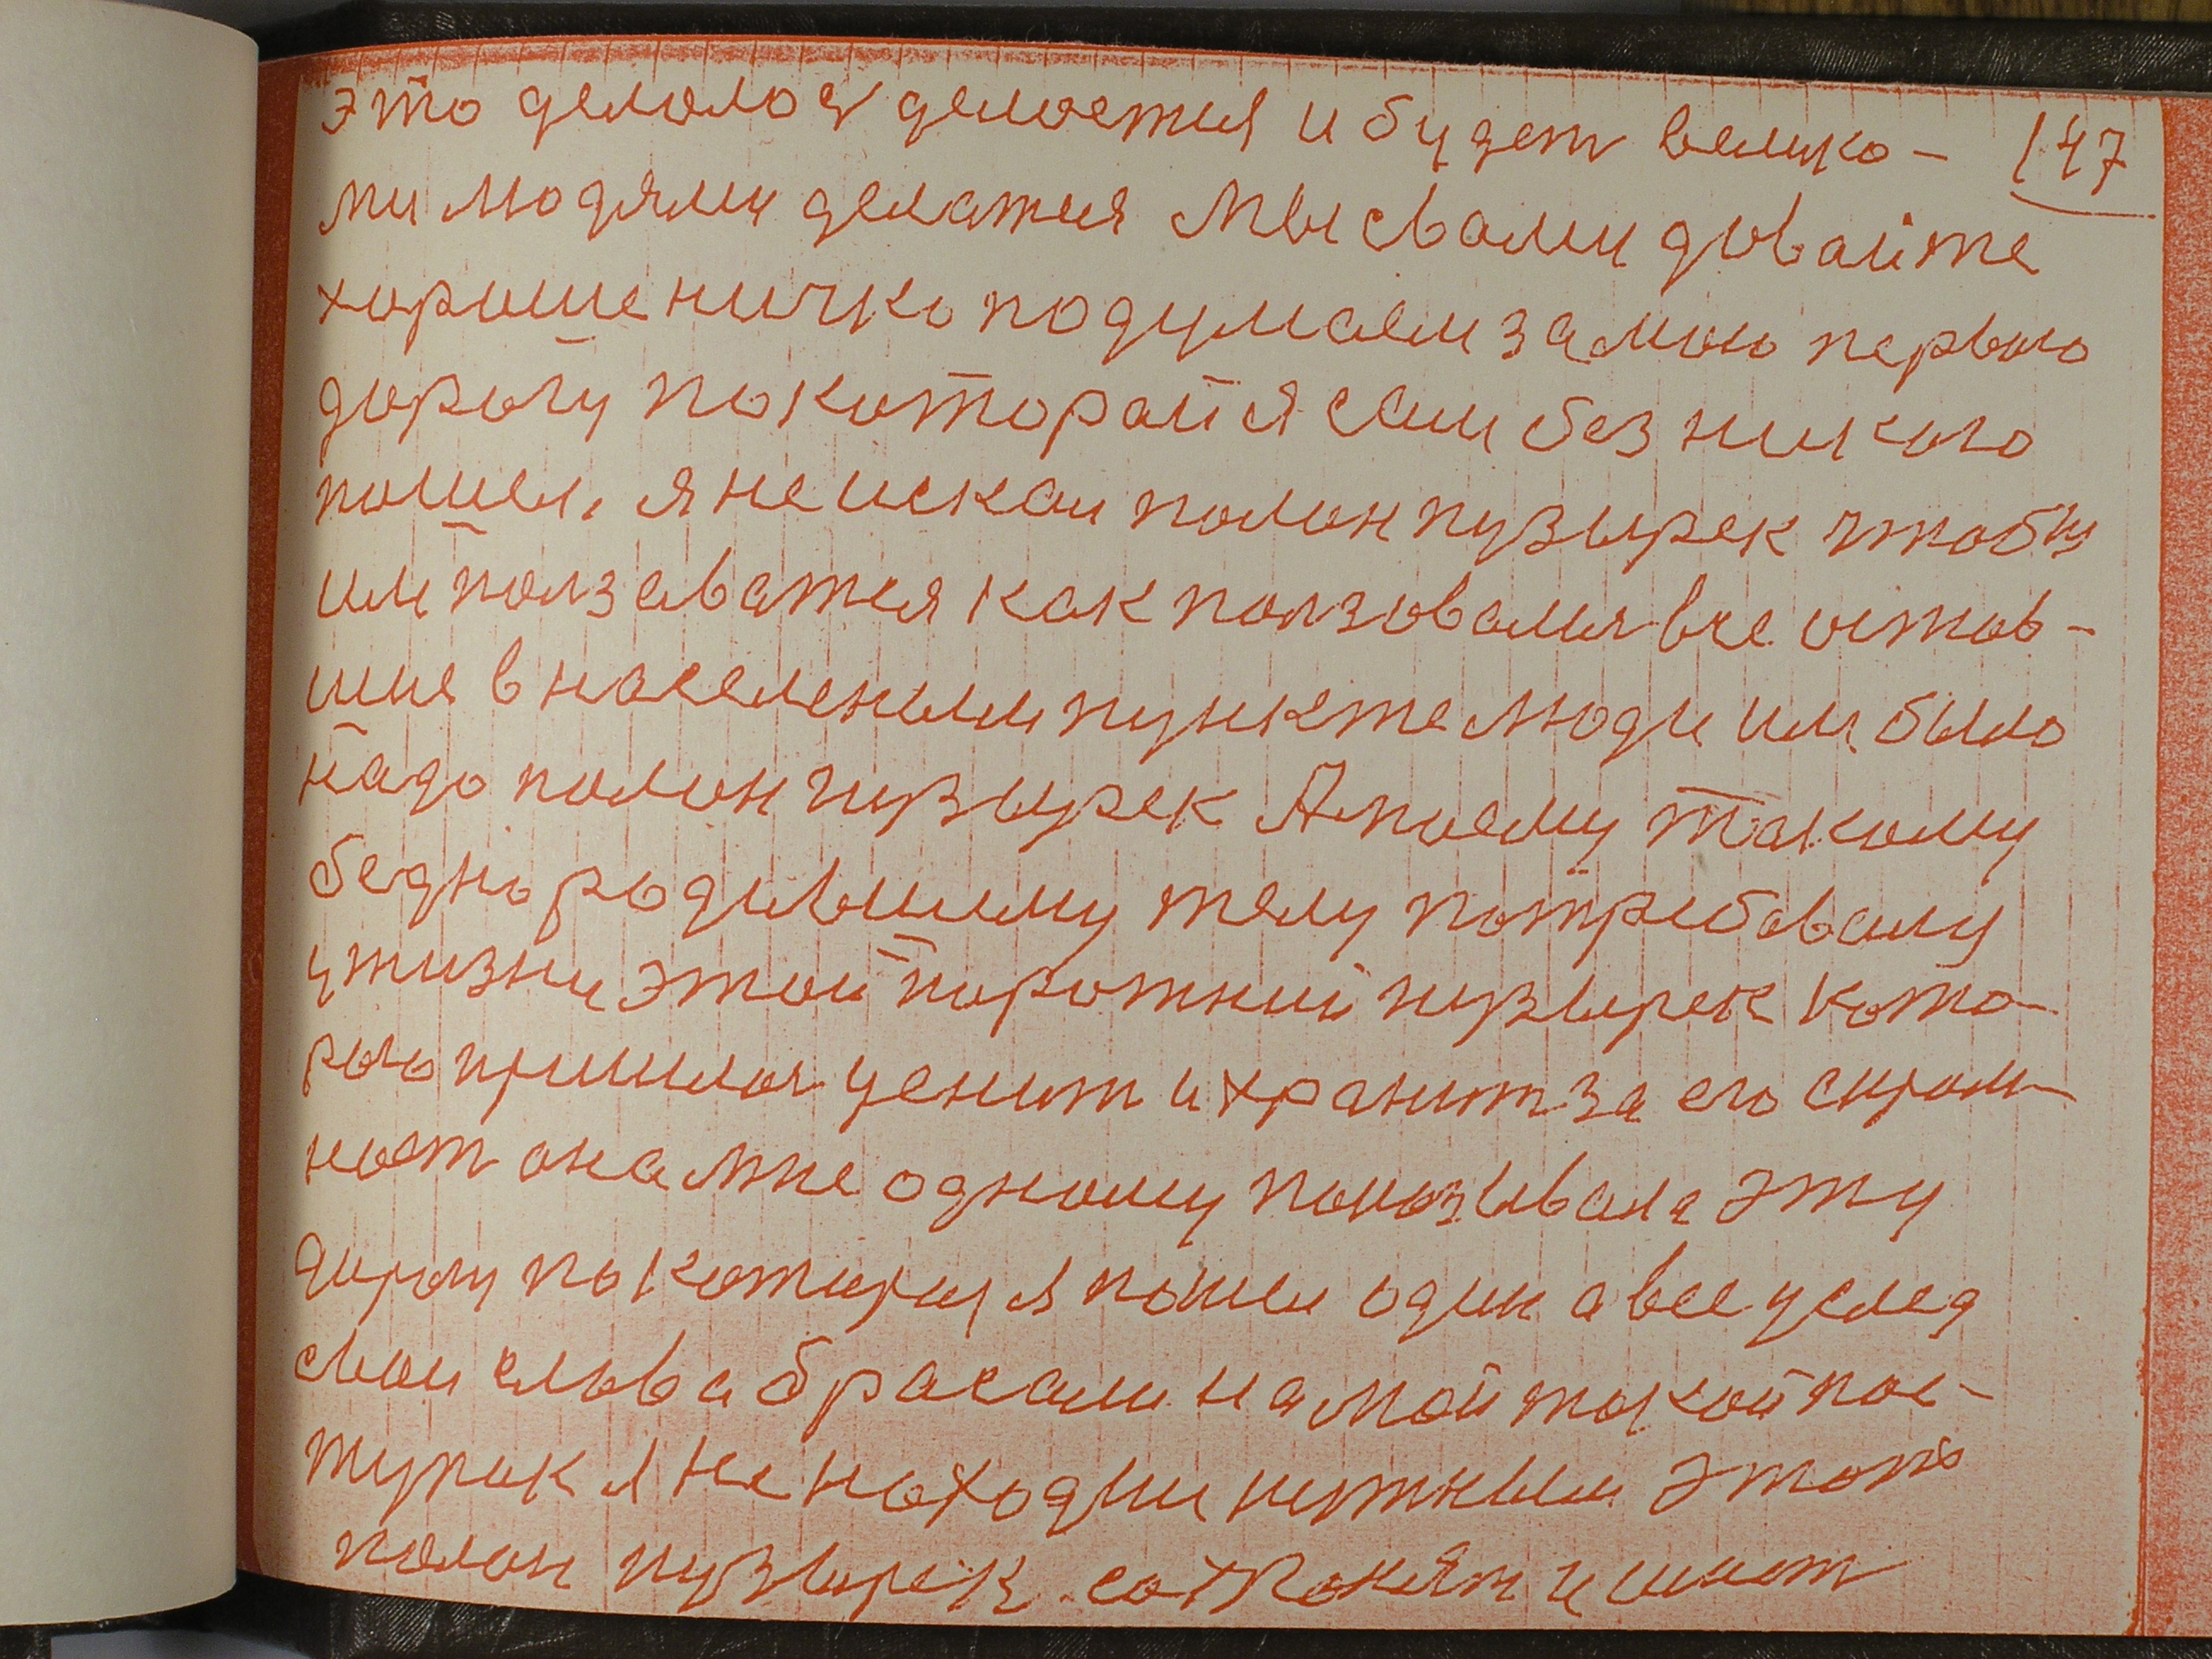 это делалося делается и будет велико- 147
ми людями делатся Мы свами давайте
хорошеничко подумаем за мою первою
дорогу по которай я сам без никого
пошел, я не искал полон пузырек чтобы
имползаватся как ползовался все остав-
шие в населеным пункте люди им было
надо полон пузырек А моему такому
бедно родившиму телу потрибавалу
у жизни этой порожний пузырек кото-
рого пришлося ценит и хранит за его скром-
ност она мне одному показывала эту
дорогу по которуя я пошел один а все услед
свои слова брасали на мой такой пос-
тупок я не находил нужным этого
полон пузырек сохранят и шют